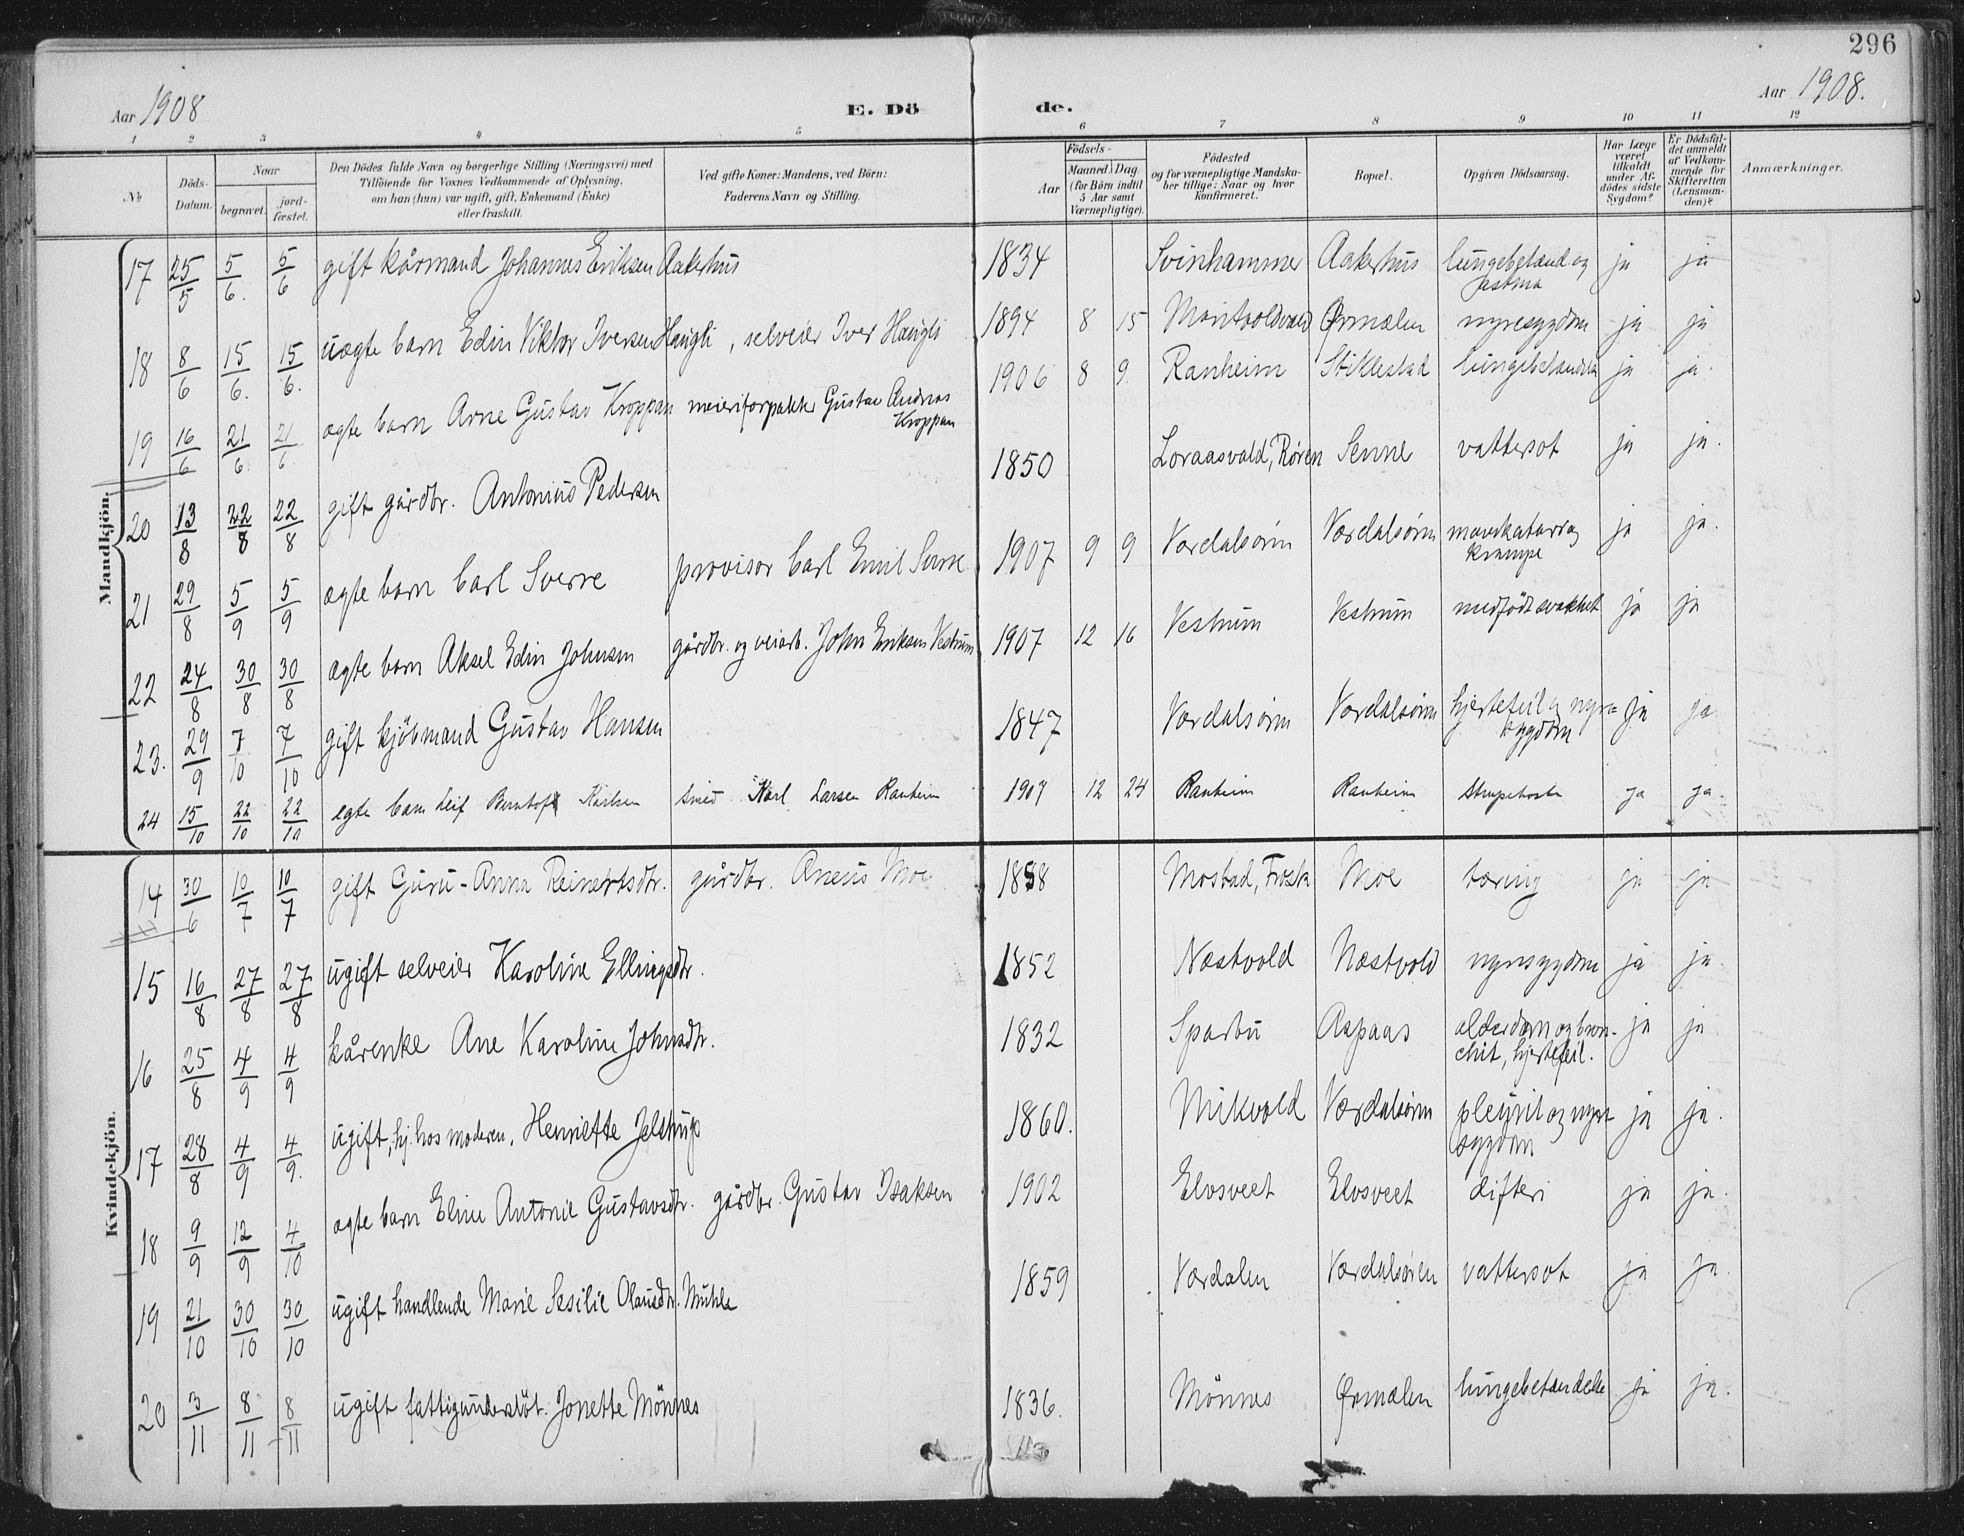 296
Aar 1908
E. Dö
de.
Aar 1908.
1 2 3 4 5 6 7 8 9 10 11 12
No
Döds-Datum.
Naar
begravet.
jord-fæstet.
Den Dödes fulde Navn og borgerlige Stilling (Næringsvei) med
Tilföiende for Voxnes Vedkommende af Oplysning,
om han (hun) var ugift, gift, Enkemand (Enke)
eller fraskilt.
Ved gifte Koner: Mandens, ved Börn:
Faderens Navn og Stilling.
Födsels-
Aar
Maaned. Dag
(for Börn indtil
5 Aar samt
Værnepligtige).
Födested
og for værnepligtige Mandska-
ber tillige: Naar og hvor
konfirmeret.
Bopæl.
Opgiven Dödsaarsag.
Har Læge
været
tilkaldt
under Af-
dödes sidste
Sygdom?
Er Dödsfal-
det anmeldt
af Vedkom-
mende for
Skifteretten
(Lensman-
den)?
Anmærkninger.
Mandkjön.
17 25/5 5/6. 5/6 gift kårmand Johannes Eriksen Aakerhus 1834 Svinhammer Aakerhus lungebetænd og astma ja ja
18 8/6 15/6. 15/6. uægte barn Edin Viktor Iversen Haugli, selveier Iver Haugli 1894 8 15 Ørmælen nyresygdom ja ja
19 16/6 21/6. 21/6 ægte barn Arne Gustav Kroppan meieriforpakter Gustav Andreas Kroppan 1906 8 9. Ranheim Stiklestad lungebetændelse ja ja.
20 13/8 22/8 22/8 gift gårdbr. Antonius Pedersen 1850 Loraasvald, Røren Senne vattersot ja ja.
21 29/8 5/9 5/9 ægte barn Carl Sverre provisor Carl Emil 1907 9 9 Værdalsøren Værdalsøren mavekatarr og krampe ja ja.
22 24/8 30/8 30/8 ægte barn Aksel Edin Johnsen gårdbr. og veiarb. John Eriksen Vestrum 1907 12 16 Vestrum Vestrum medfödt svakhet ja ja
23. 29/9 7/10 7/10 gift kjöbmand Gustav Hansen 1847 Værdalsøren Værdalsøren hjertefeil og nyre=sygdom ja ja
24 15/10 22/10 22/10 egte barn Leif Karlsen Smed Karl Larsen Ranheim 1907 12 24 Ranheim Ranheim Strupehoste ja ja.
Kvindekjön.
14 30/6 10/7 10/7 gift Guru-Anna Reinertsdtr. gårdbr. Aneus Moe 1858 Mostad, Frosta Moe tæring ja ja
15 16/8 27/8 27/8 ugift selveier Karoline Ellingsdtr. 1852 Næstvold Næstvold nyresygdom ja ja.
16 25/8 4/9 4/9 kårenke Ane Karoline Johnsdtr. 1832 Sparbu Aspaas alderdom og bron-chit, hjertefeil. ja ja
17 28/8 4/9 4/9. ugift, hj. hos moderen, Henriette Jelstrup 1860. Mikvold Værdalsøren pleurit og nyresygdom ja ja.
18 9/9 12/9 4/10 ægte barn Eline Antonie Gustavsdtr. gårdbr. Gustav Isaksen 1902 Elvsveet Elvsveet difteri ja ja.
19 21/10 30/10 30/10 ugift handlende Marie Sesilie Olausdtr. Mühle 1859 Værdalen Værdalsøren vattersot ja ja.
20 3/11 8/11 8/11 ugift fattigunderstöt. Jonette Mönnes 1836. Mönnes Ørmælen lungebetændelse ja ja.